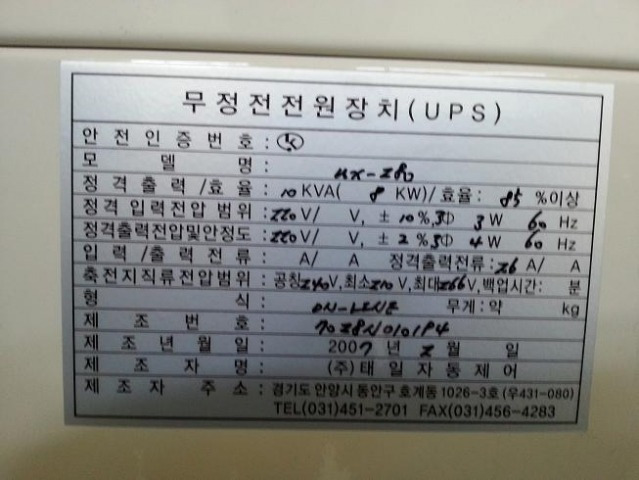 무정전전원장치(UPS)
안전인증번호:
모델명:
정격출력/효율: 10 KVA( 8 KW)/효율: 85 %이상
정격 입력전압 범위: 220 V/ V, ± 10 %, 3Φ 3 W 60 Hz
정격출력전압및안정도: 220 V/ V, ± 2 %, 3Φ 4 W 60 Hz
입력/출력 전류: A/ A 정격출력전류: 26 A/ A
축전지직류전압범위: 공칭240V,최소210V,최대266V,백업시간: 분
형식: ON-LINE 무게:약 kg
제조번호:
제조년월일: 2007 년 2 월 일
제조자명: (주)태일자동제어
제조자 주소: 경기도 안양시 동안구 호계동 1026-3호 (우431-080)
TEL(031)451-2701 FAX(031)456-4283